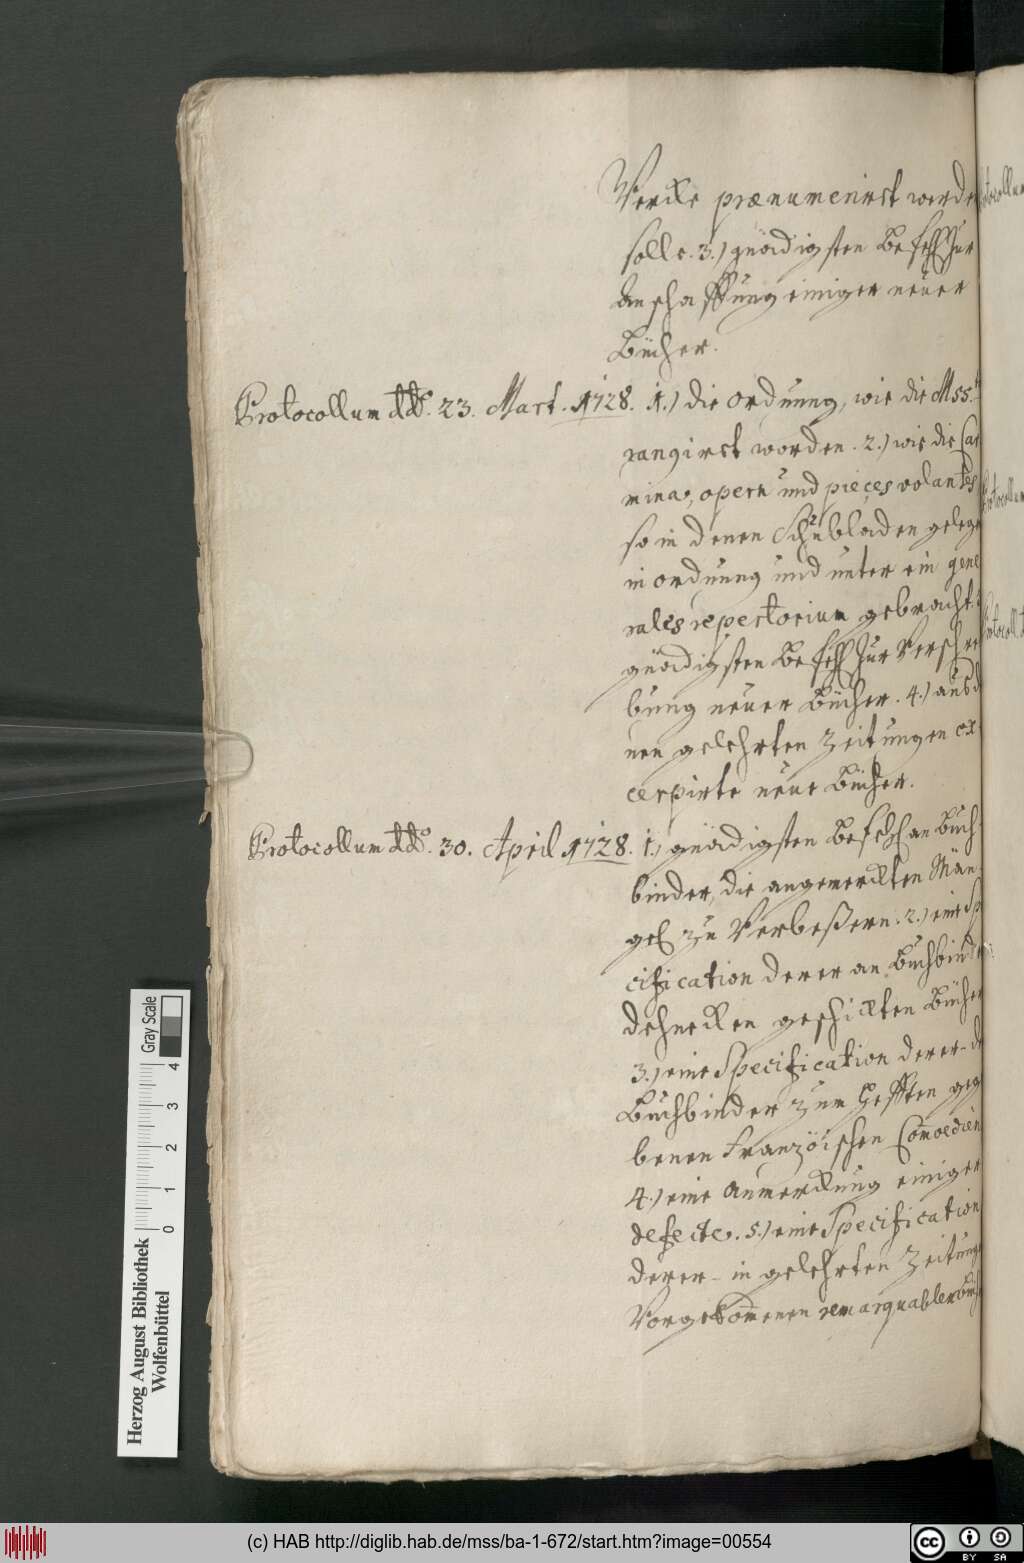 Wercke prænumerirt werde
solle. 3.) gnädigsten Befehl zur
Anschaffung einiger neuer
Bücher.
Protocollum dd°. 23. Mart. 1728. 1.) die Ordnung, wie die Mss.ta
rangirt worden. 2.) wie die Car
mina, opern und pieçes volantes
so in denen Schubladen gelege
in Ordnung und unter ein gene
rales repertorium gebracht.
gnädigsten Befehl zur Verschrei
bung neuer Bücher. 4.) aus d
nen gelehrten Zeitungen ex
cerpirte neue Bücher.
Protocollum dd°. 30. April 1728. 1.) gnädigsten Befehl an Buch
binder, die angemerckten Män
gel zu Verbeßern. 2.) eine Sp
cification derer an Buchbinder
Behnecken geschickten Bücher
3.) eine Specification derer-de
Buchbinder zum Hefften geg
benen Französchen Comoedien
4.) eine Anmerckung einiger
defecte. 5.) eine Specification
derer-in gelehrten Zeitunge
Vorgekommenen remarquabler Büch
Protocollum
Protocollum
Protocoll
Gray Scale
0 1 2 3 4
Herzog August Bibliothek
Wolfenbüttel
(c) HAB http://diglib.hab.de/mss/ba-1-672/start.htm?image=00554
cc BY SA